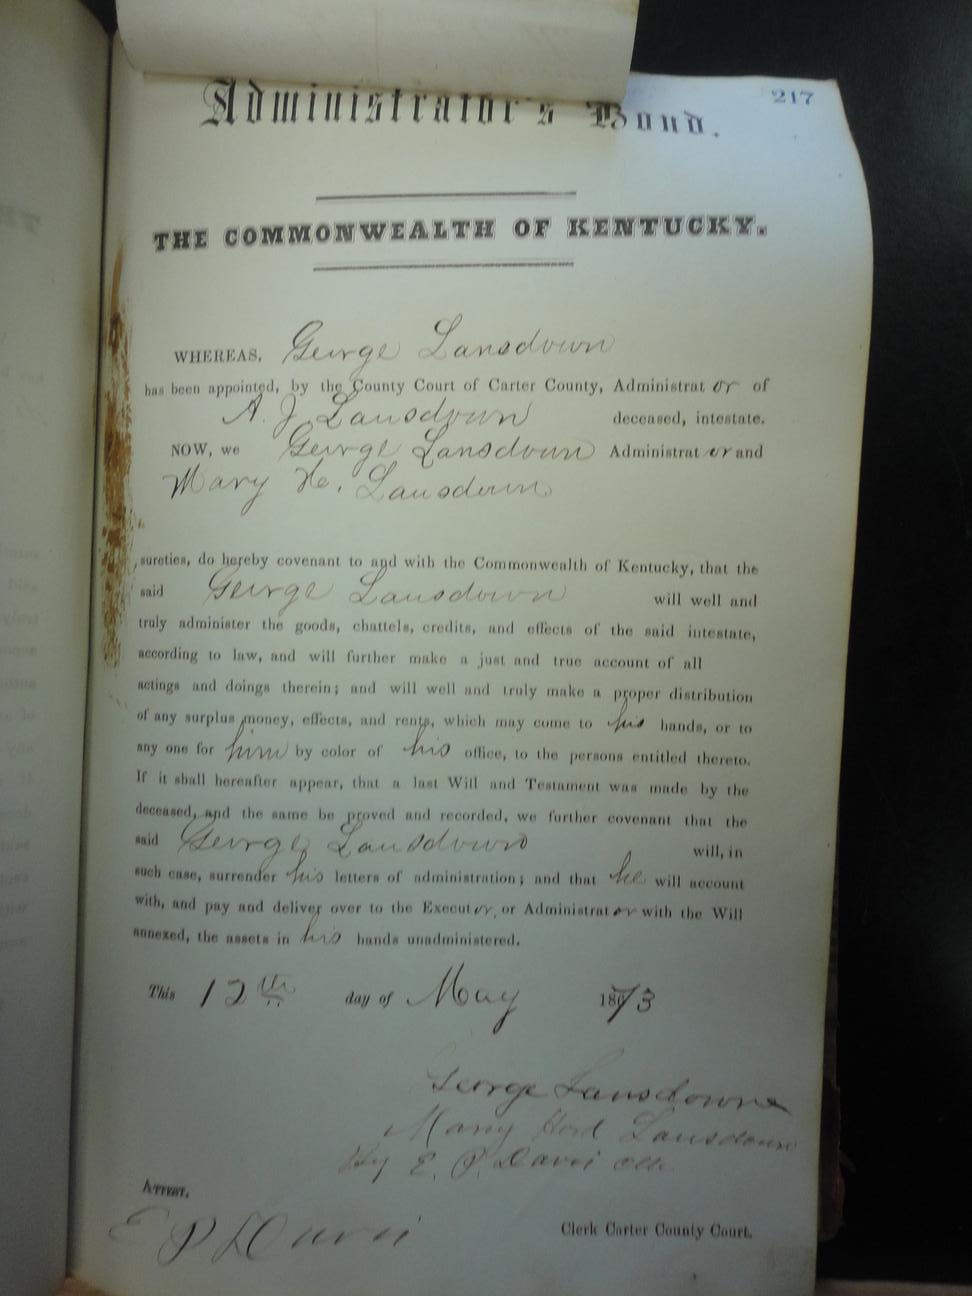 217
Administrator's Bond.
THE COMMONWEALTH OF KENTUCKY.
WHEREAS, George Lansdown
has been appointed, by the County Court of Carter County, Administrator of
A. J. Lansdown deceased, intestate.
NOW, we George Lansdown Administrator and
Mary H. Lansdown
sureties, do hereby covenant to and with the Commonwealth of Kentucky, that the
said George Lansdown will well and
truly administer the goods, chattels, credits, and effects of the said intestate,
according to law, and will further make a just and true account of all
actings and doings therein; and will well and truly make a proper distribution
of any surplus money, effects, and rents, which may come to his hands, or to
any one for him by color of his office, to the persons entitled thereto.
If it shall hereafter appear, that a last Will and Testament was made by the
deceased, and the same be proved and recorded, we further covenant that the
said George Lansdown will, in
such case, surrender his letters of administration; and that he will account
with, and pay and deliver over to the Executor, or Administrator with the Will
annexed, the assets in his hands unadministered.
This 12th day of May 1873
George Lansdowne
Mary Hord Lansdowne
By E. P. Davis
Attest.
E P Davis Clerk Carter County Court.